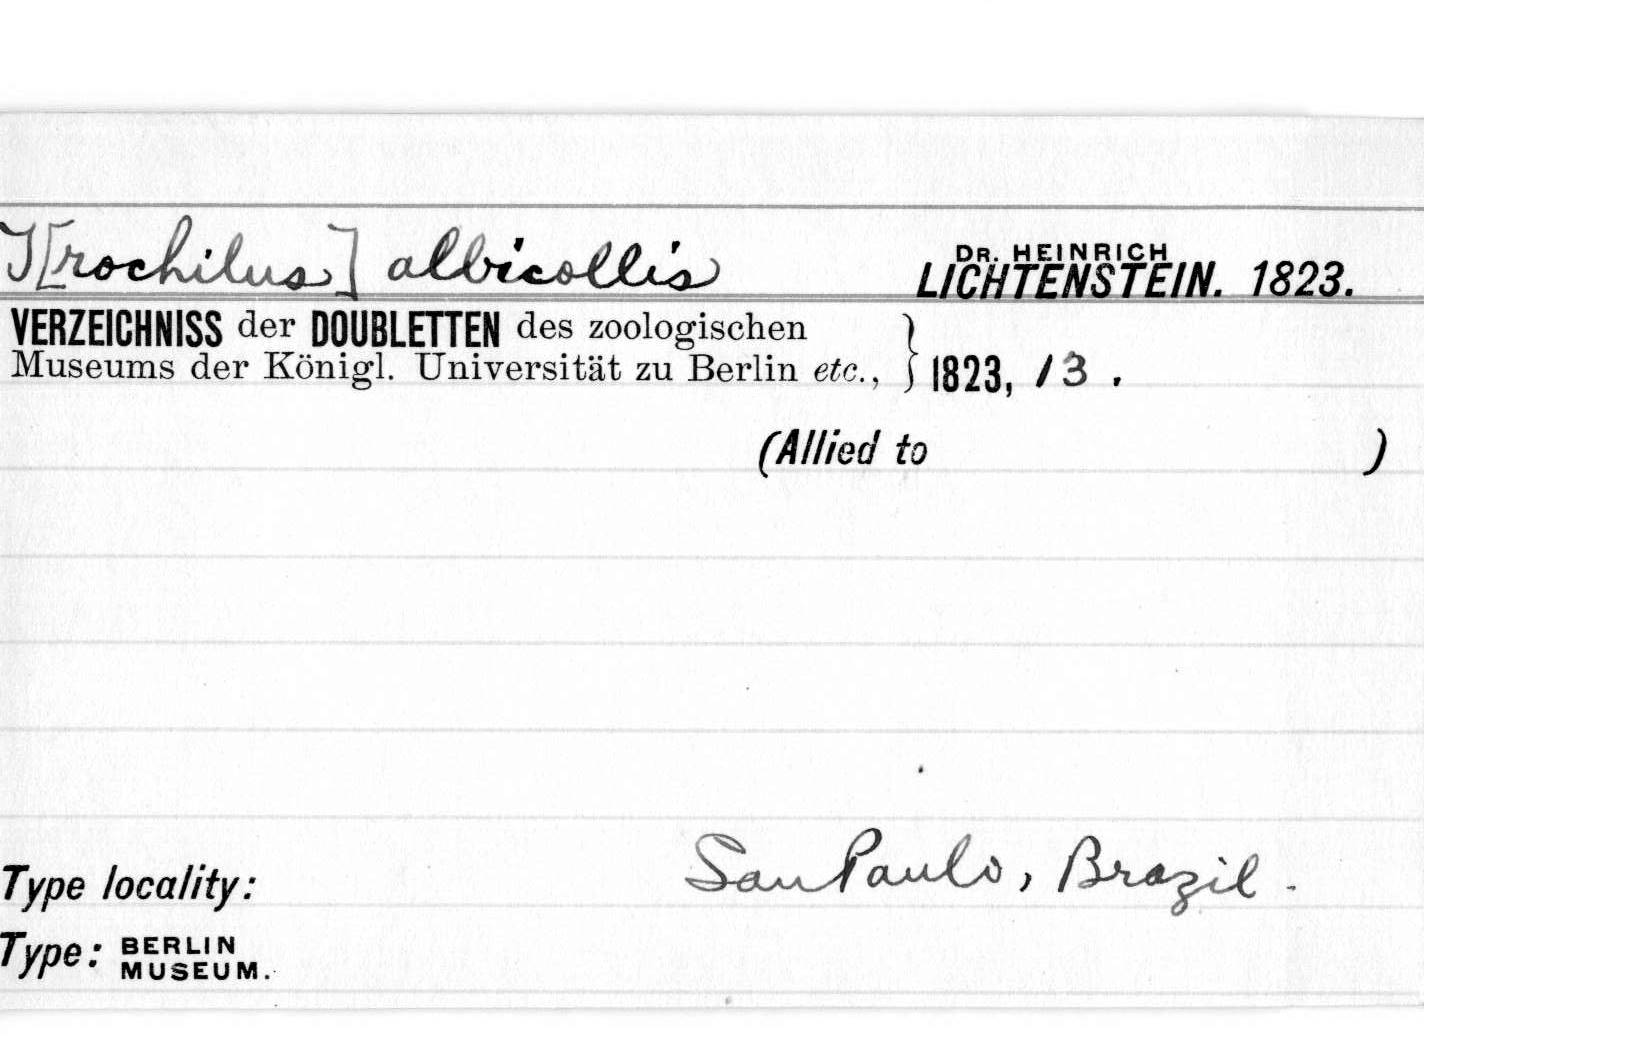 T[rochilus] albicollis
DR. HEINRICH
LICHTENSTEIN. 1823.
VERZEICHNISS der DOUBLETTEN des zoologischen
Museums der Königl. Universität zu Berlin etc., } 1823, 13.
(Allied to )
Type locality: San Paulo, Brazil.
Type: BERLIN
MUSEUM.